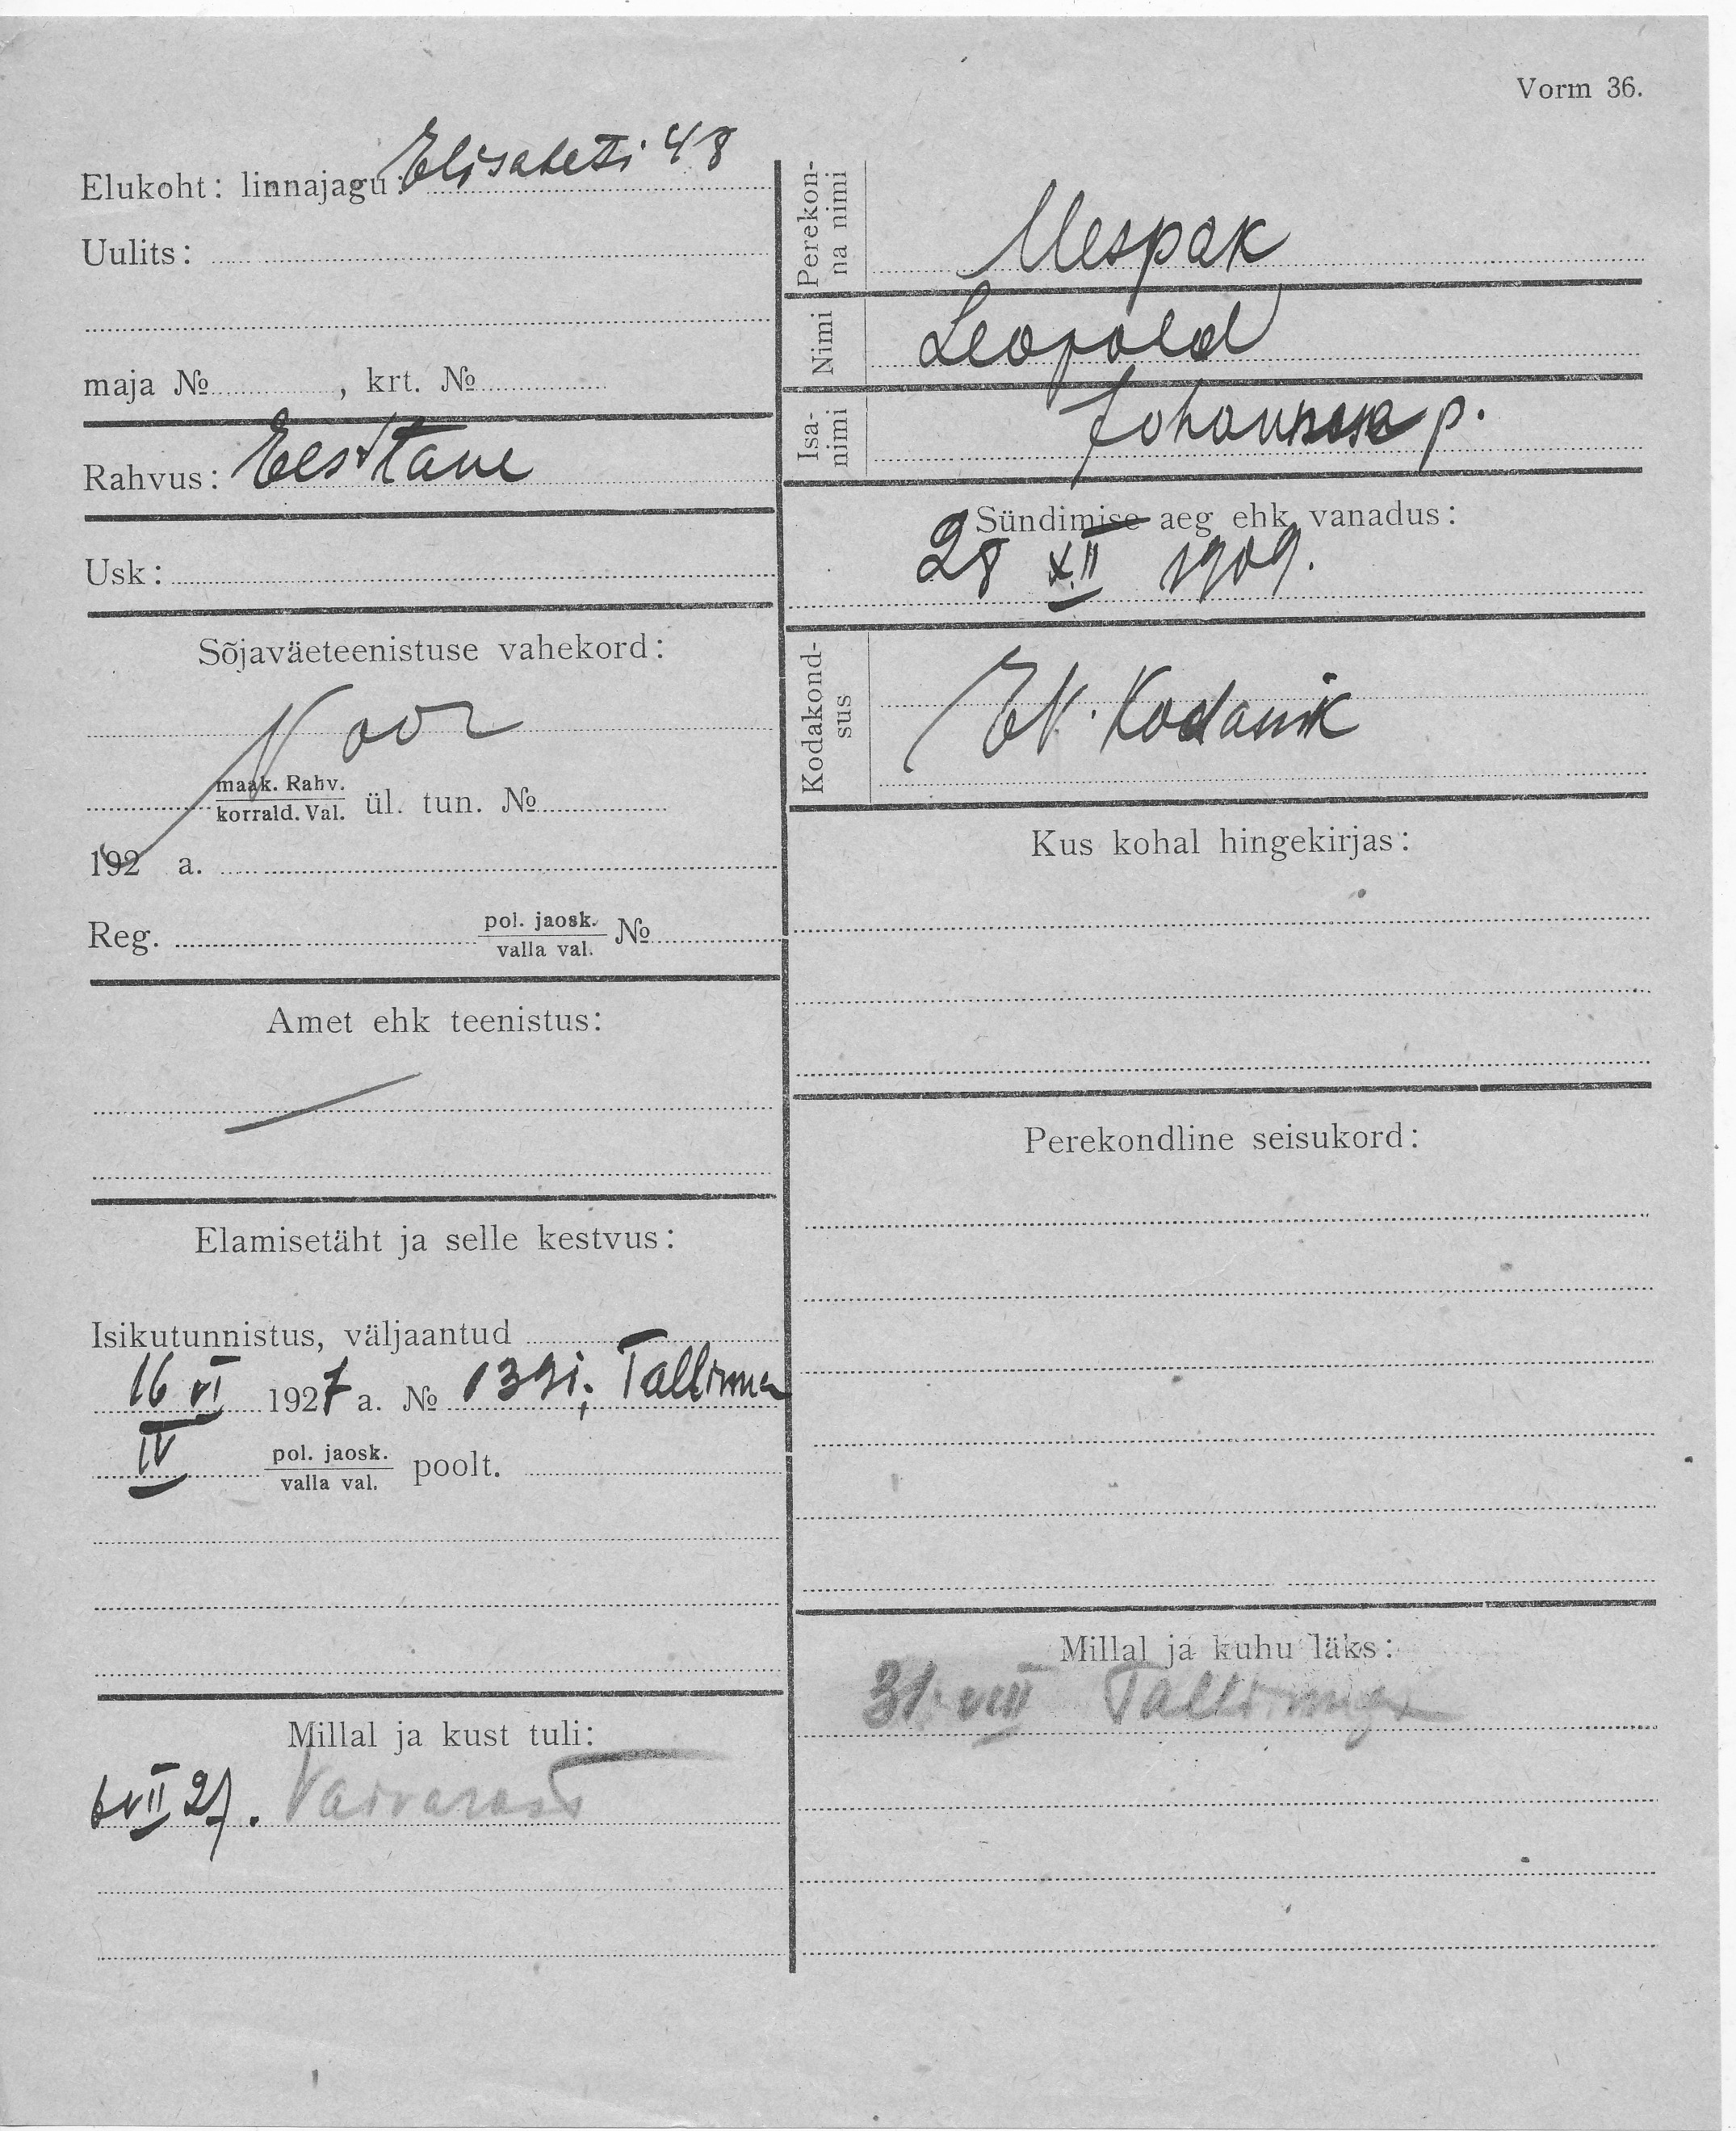 Vorm 36.
Elukoht: linnajagu: Elisabeti 48
Uulits:
maja №, krt. №
Rahvus: Eestlane
Usk:
Sõjaväeteenistuse vahekord:
Noor
maak. Rahv.
korrald. Val. ül. tun. №
192 a.
Reg. pol. jaosk. №
valla val.
Amet ehk teenistus:
Elamisetäht ja selle kestvus:
Isikutunnistus, väljaantud
16 VI 1927 a. № 1391; Tallinna
IV pol. jaosk. poolt.
valla val.
Millal ja kust tuli:
6 VII 27. Vaivarast
Perekon-
na nimi
Mespak
Nimi
Leopold
Isa-
nimi
Johannese p.
Sündimise aeg ehk vanadus:
28 XII 1909.
Kodakond-
sus
EV. Kodanik
Kus kohal hingekirjas:
Perekondline seisukord:
Millal ja kuhu läks:
31. VIII Tallinna